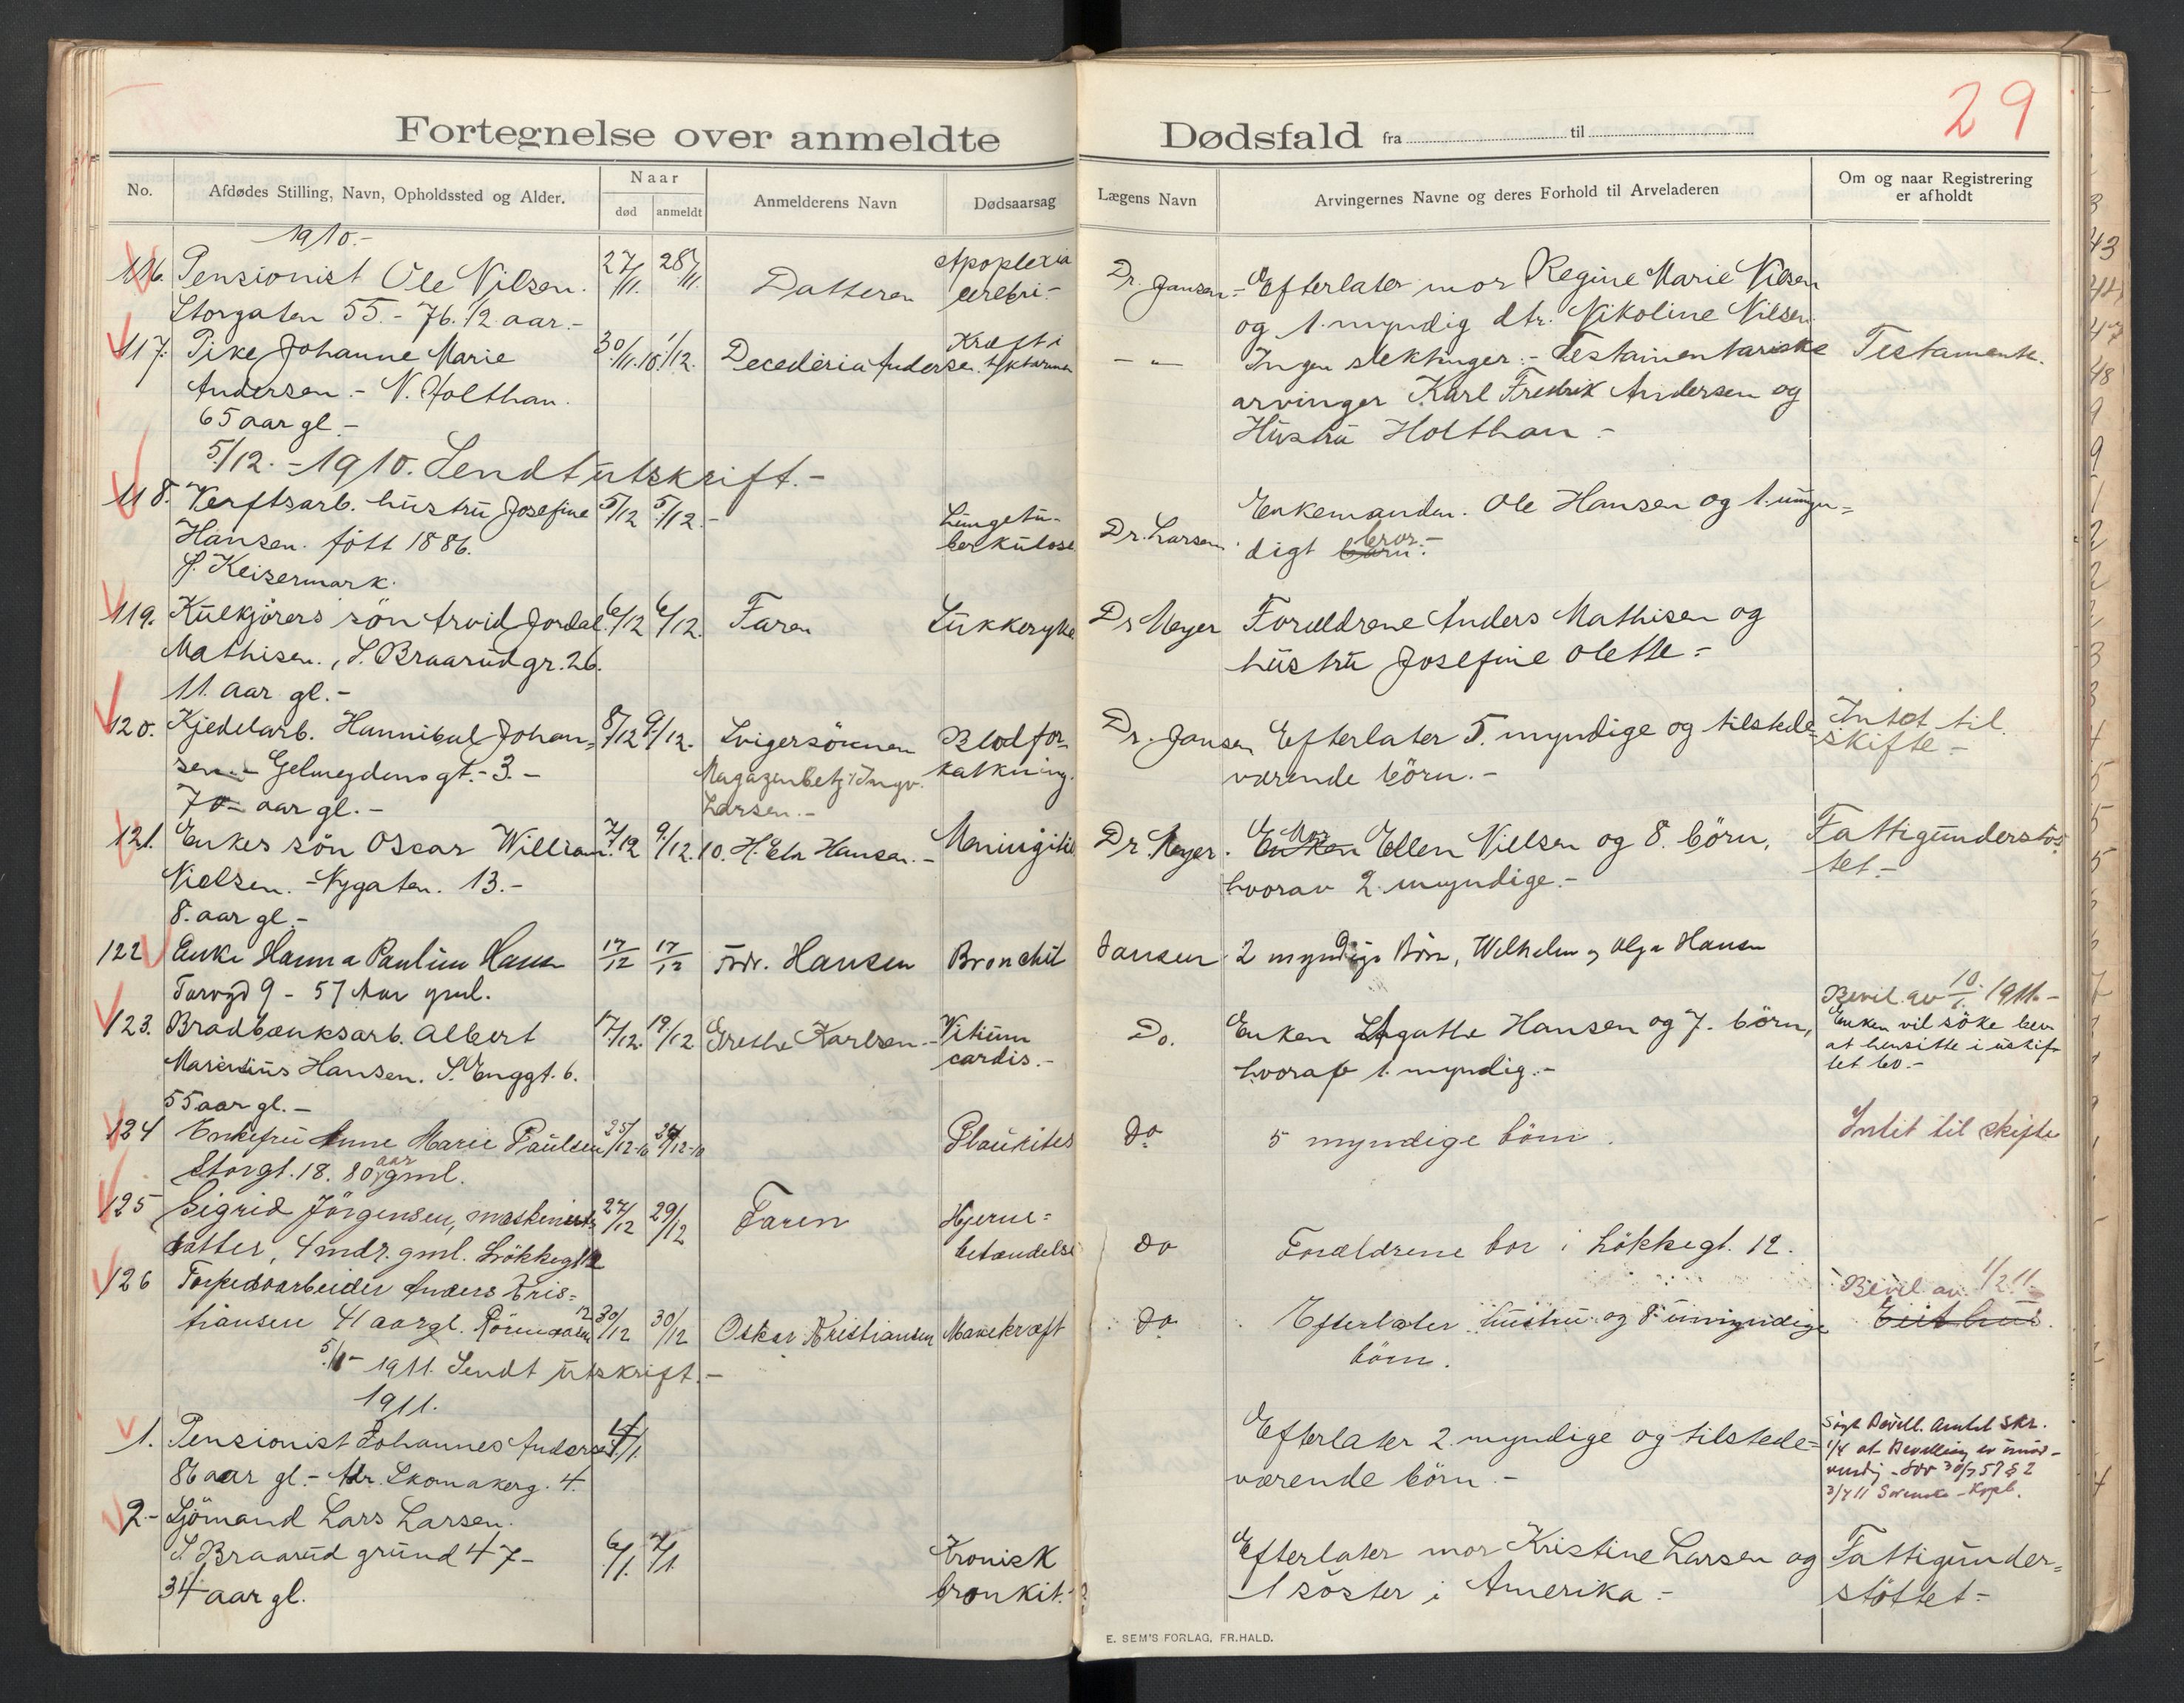 Fortegnelse over anmeldte Dødsfald fra til
29
No. Afdødes Stilling, Navn, Opholdssted og Alder. Naar død anmeldt Anmelderens Navn Dødsaarsag Lægens Navn Arvingernes Navne og deres Forhold til Arveladeren Om og naar Registrering er afholdt
1910.-
116. Pensionist Ole Nilsen. 27/11. 28/11. Datteren Apoplexia cerebri.- Dr. Jansen.- Efterlater mor Regine Marie Nilsen
Storgaten 55.- 76 1/2 aar.- og 1. myndig dtr. Nikoline Nilsen.
117. Pike Johanne Marie 30/11.10. 1/12. Andersen Kræft i tyktarmen — " — Ingen slektninger.- Testamentariske Testamente.
Andersen.- N. Holthan. arvinger Karl Fredrik Andersen og
65 aar gl.- Hustru Holthan.-
5/12.-1910. Sendt utskrift.-
118. Verftsarb. hustru Josefine 5/12 5/12.- Lungetu- Enkemanden. Ole Hansen og 1. umyn=
Hansen. født 1886. berkulose Dr. Larsen. digt barn bror.-
S. Keisermark.
119. Kulkjörers sön Arvid Jordal 6/12 6/12. Faren Dr Meyer Foreldrene Anders Mathisen og
Mathisen., S. Braarudgr. 26. hustru Josefine Olette.-
11. aar gl.-
120. Kjedelarb. Hannibal Johan= 8/12 9/12. Svigersönnen Blodfor- Dr. Jansen Efterlater 5. myndige og tilstede= Intet til
sen.- gt.- 3.- Magazinbetj. Ingv. kalkning. værende börn.- skifte-
70- aar gl.- Larsen.-
121. Enkes sön Oscar William 7/12 9/12.10. Hansen.- Meningitis Dr. Meyer. Enken Mor Ellen Nielsen og 8. börn, Fattigunderstöt-
Nielsen.- Nygaten. 13.- hvorav 2. myndige.- tet.-
8. aar gl.-
122 Enke Hanna Pauline Hansen 17/12 17/12 Fdr. Hansen Bronchit Jansen 2 myndige Börn, Wilhelm og Olga Hansen
9 - 57 Aar gml.
123. Brodbænksarb. Albert 17/12. 19/12 Grethe Karlsen.- Vitium Do. Enken Agathe Hansen og 7. börn, Bevil. av 10./1. 1911.-
Marinius Hansen. S. Enggt. 6. cordis.- hvoraf 1. myndig.- Enken vil söke bev.
55 aar gl.- at hensitte i uskif-
tet bo.-
124 Enkefru Anne Marie Paulsen 25/12-10 /12-10 do 5 myndige börn. Intit til skifte
Storgt. 18. 80 aar gml.
125 Sigrid Jörgensen, maskinist- 27/12 29/12 Faren Hjerne=
datter, 4 mdr. gml. Lökkegt 12 betændelse do Forældrene bor i Lökkegt. 12.
126 Torpedoarbeider Anders Kris= Bevil. av. 1/2 11
tiansen 41 aar gl. 12 30/12 30/12 Oskar Kristiansen Mavekræft do Efterlater hustru og 8. umyndige
5/1- 1911. Sendt utskrift.- börn.
1911.
1. Pensionist Johannes Andersen 4/1. Efterlater 2. myndige og tilstede=
86 aar gl.- Adr. Skomakerg. 4. værende börn.-
2.- Sjömand Lars Larsen.
S. Braarud grund 47- 6/1. 7/1. Kronisk Efterlater mor Kristine Larsen og Fattigunder=
34 aar gl. bronkit.- 1 söster i Amerika.- støttet-
E. SEM'S FORLAG, FR.HALD.